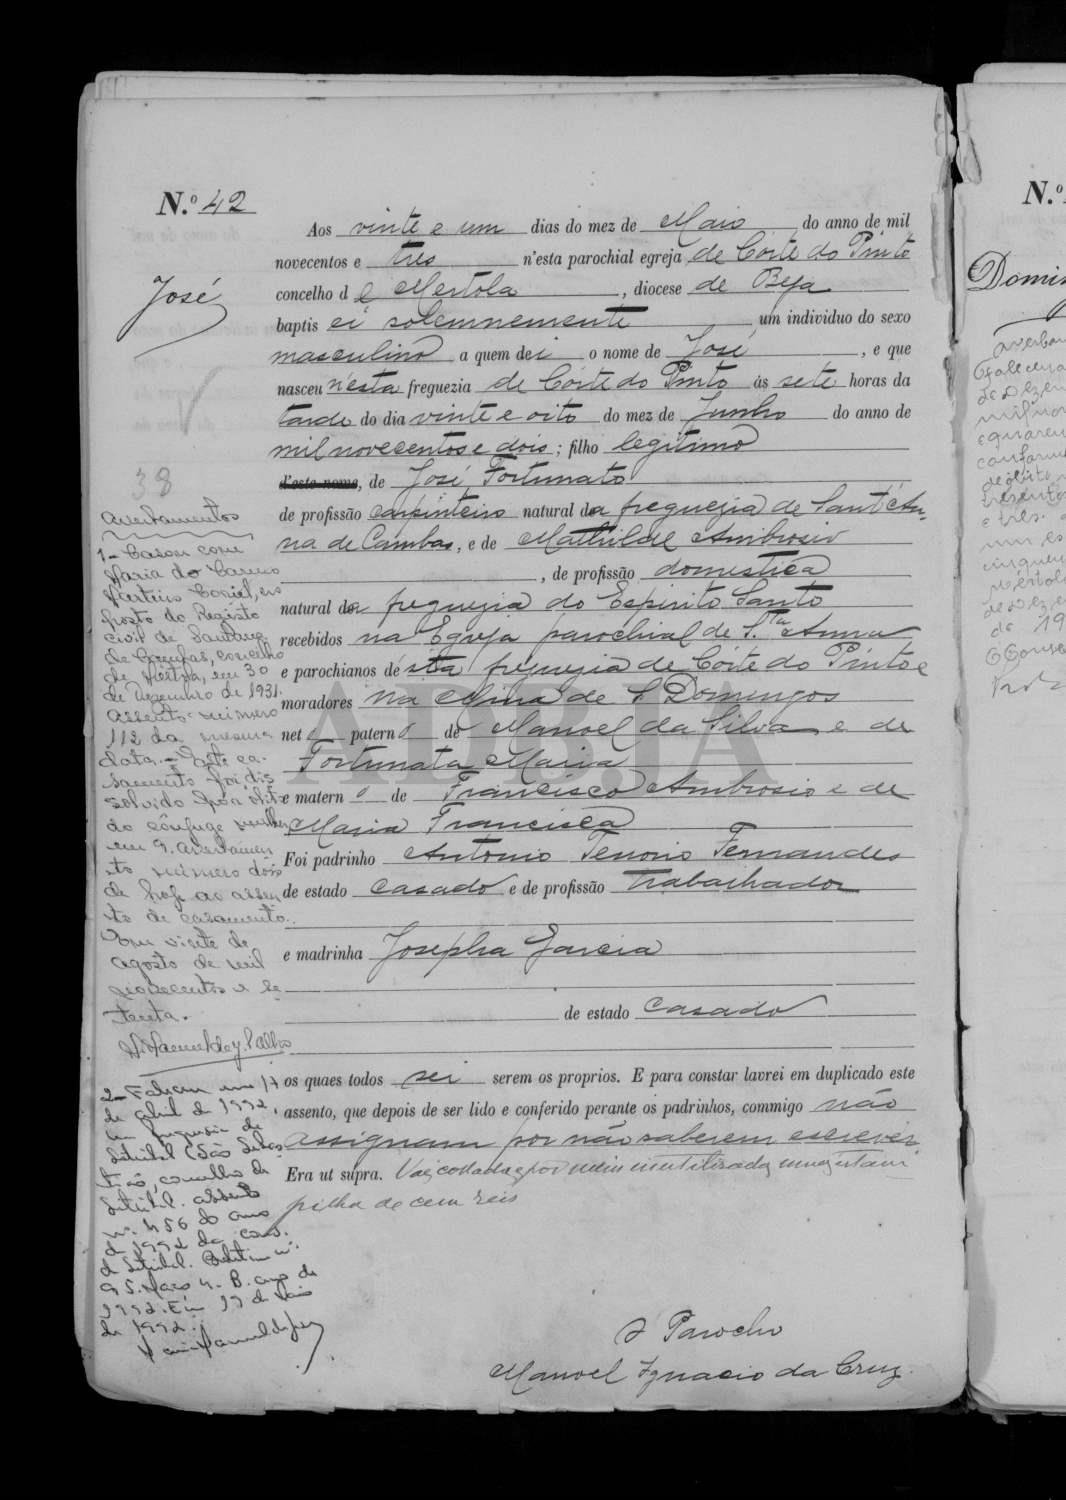 N.º 42
José
Aos vinte e um dias do mez de Maio do anno de mil
novecentos e tres n'esta parochial egreja de Côrte do Pinto
concelho de Mertola, diocese de Beja
baptisei solemnemente um individuo do sexo
masculino a quem dei o nome de José, e que
nasceu n'esta freguezia de Côrte do Pinto ás sete horas da
tarde do dia vinte e oito do mez de Junho do anno de
mil novecentos e dois; filho legitimo
d'este nome, de José Fortunato
de profissão carpinteiro natural da freguezia de Sant'An-
na de Cambas, e de Mathilde Ambrosio
, de profissão domestica
natural da freguezia do Espirito Santo
recebidos na Egreja parochial de S.ta Anna
e parochianos désta freguezia de Côrte do Pinto e
moradores na Mina de S. Domingos
neto paterno de Manoel da Silva e de
Fortunata Maria
e materno de Francisco Ambrosio e de
Maria Francisca
Foi padrinho Antonio Tenorio Fernandes
de estado casado e de profissão trabalhador
e madrinha Josepha Garcia
de estado casado
os quaes todos sei serem os proprios. E para constar lavrei em duplicado este
assento, que depois de ser lido e conferido perante os padrinhos, commigo não
assignam por não saberem escrever
Era ut supra. Vai collada e por mim inutilizada uma estam-
pilha de cem reis
O Parocho
Manoel Ignacio da Cruz.
38
Averbamentos
1- Casou com
Maria do Carmo
Martins
posto do Registo
civil de Santana
de Cambas, concelho
de Mértola, em 30
de Dezembro de 1931.
Assento número
112 da mesma
data. - Este ca-
samento foi dis-
solvido por óbito
do cônjuge mulher
averbamen-
to número dois
de hoje ao assen-
to de casamento.
Em vinte de
agosto de mil
novecentos e se-
tenta.
2- Faleceu em 17
de abril de 1992,
na freguesia de
Setúbal (São Sebas-
tião, concelho de
Setúbal. Assento
nº. 456 do ano
de 1992 da Cons.
de Setúbal. Boletim nº.
95. Maço 4. B. ano de
1992. Em 19 de Maio
de 1992.
ADBJA
N.º
Domin
averba
Faleceu
de Dezem
e tres.
do 19